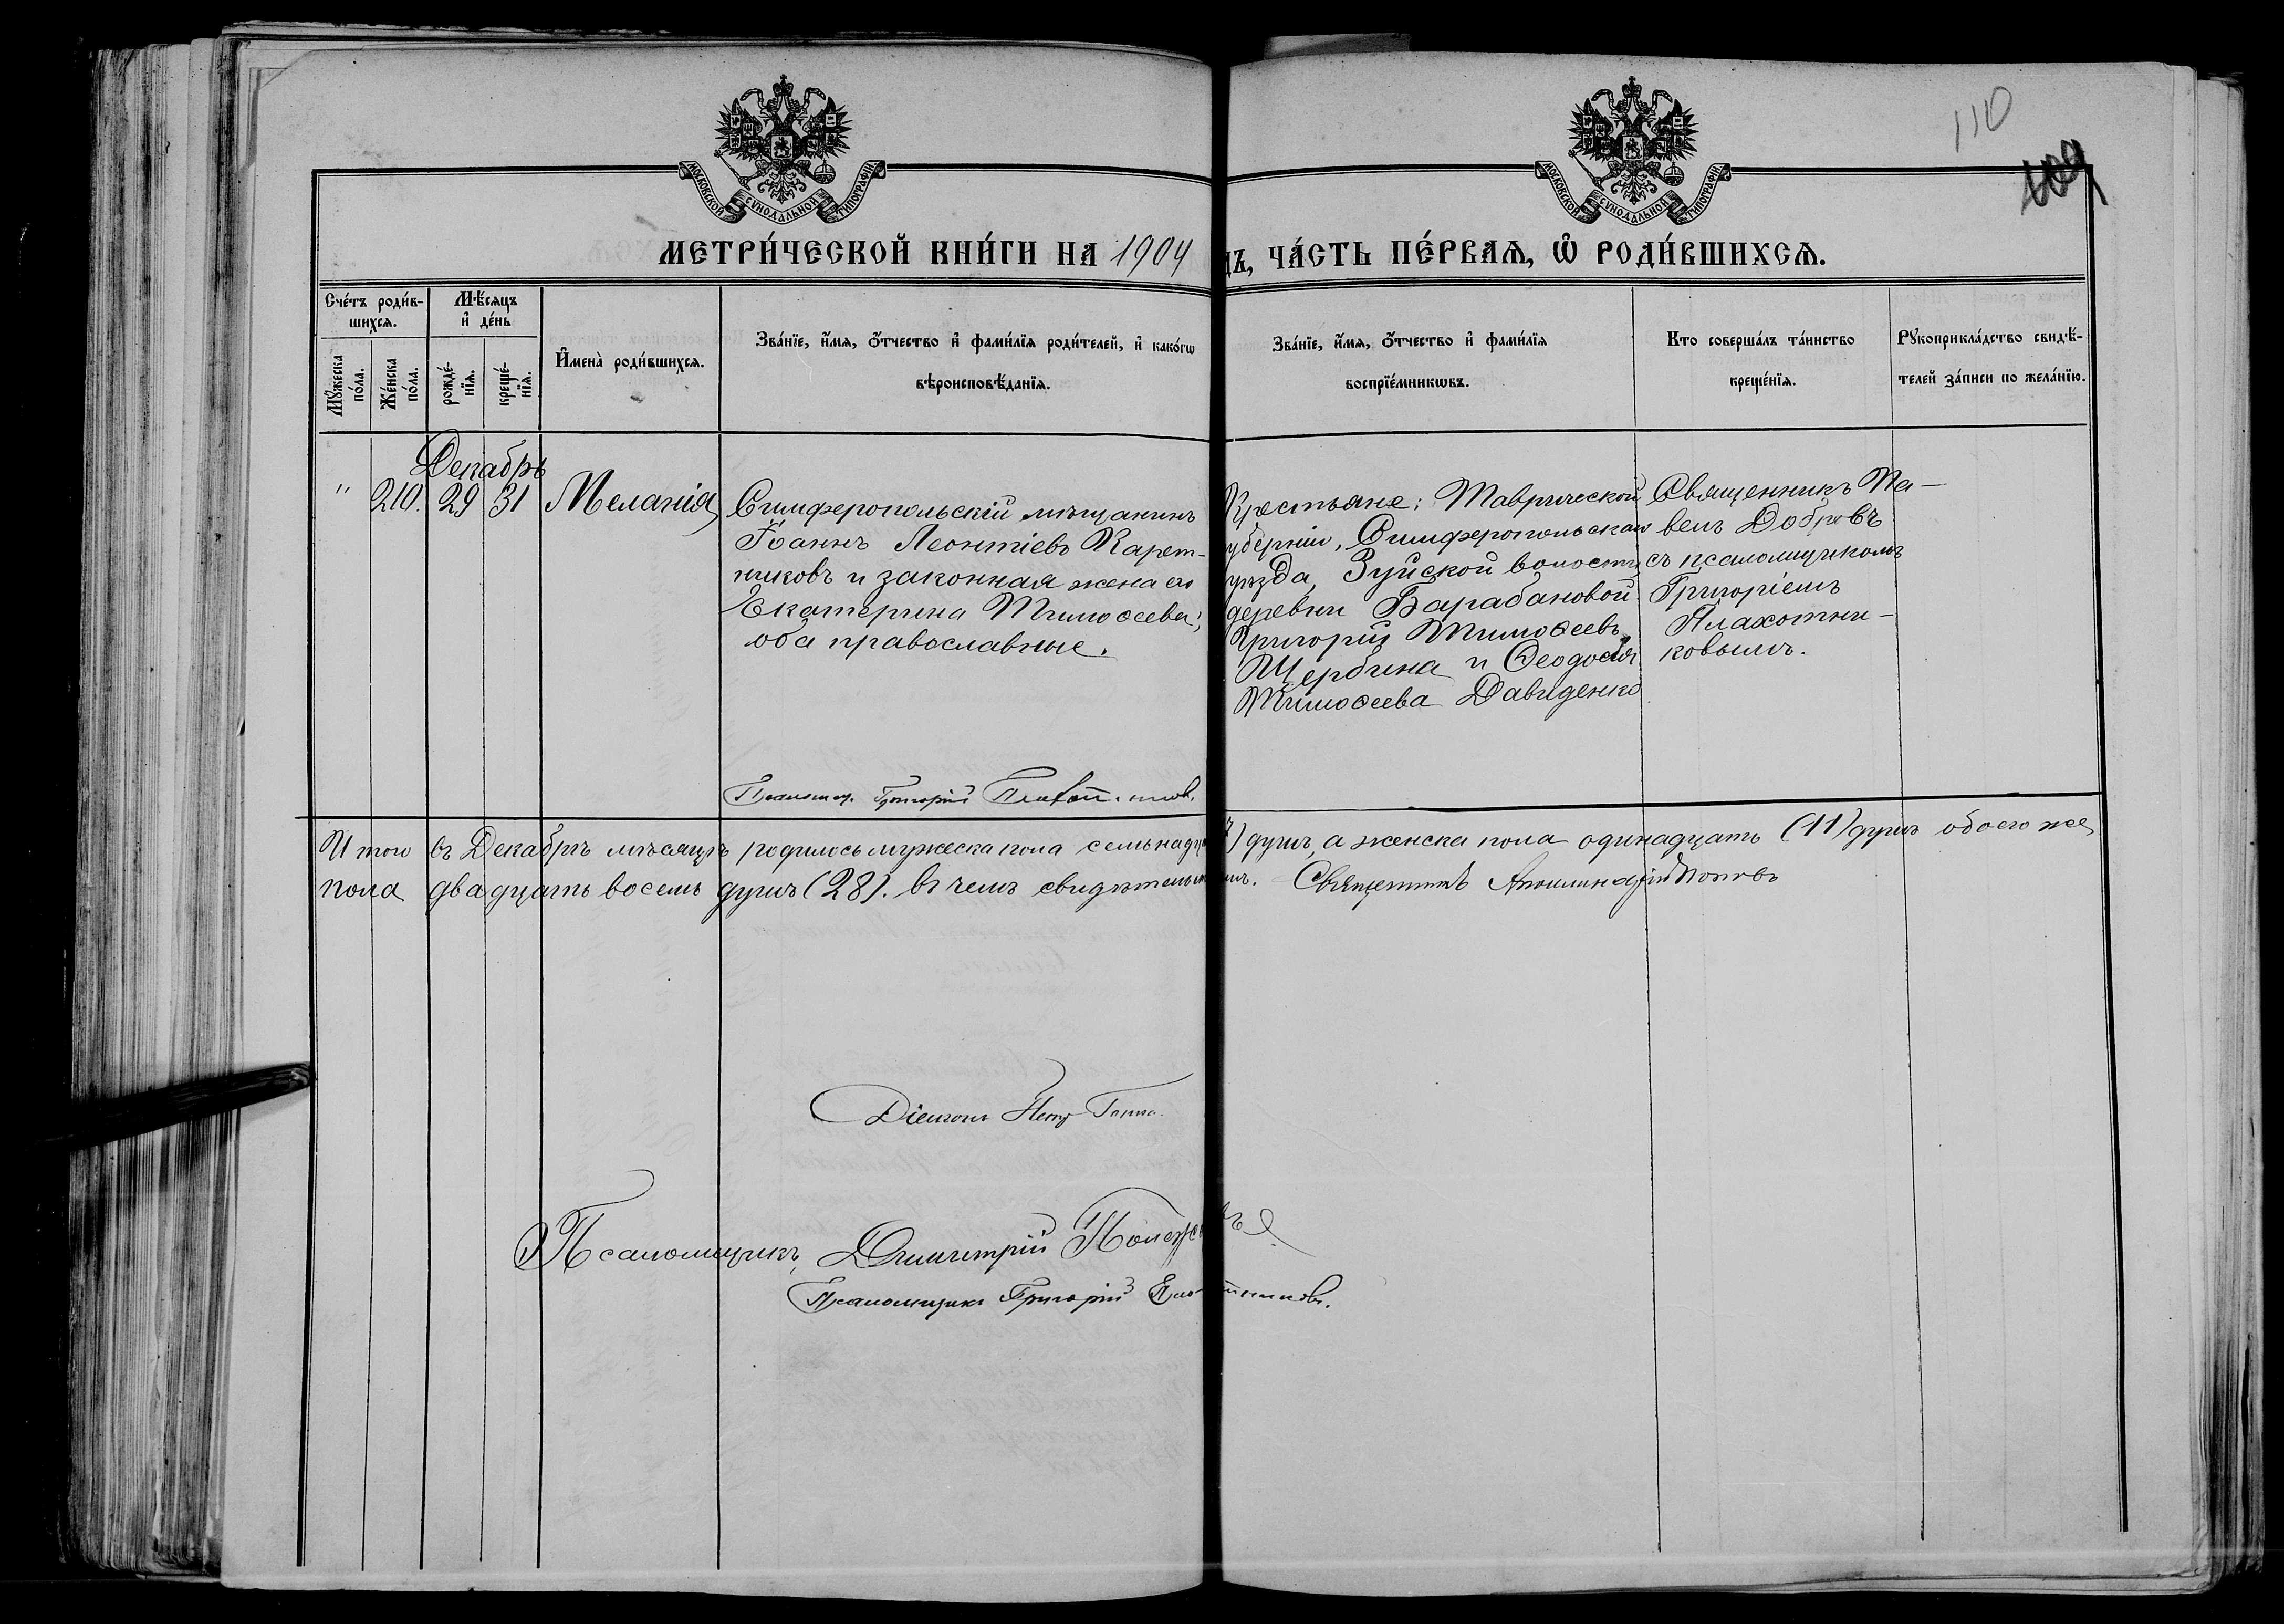 110
109
МОСКОВСКОЙ СѴНОДАЛЬНОЙ ТИПОГРАФІИ
МОСКОВСКОЙ СѴНОДАЛЬНОЙ ТИПОГРАФІИ
МЕТРИ́ЧЕСКОЙ КНИ́ГИ НА 1904
ДЪ, ЧА́СТЬ ПЕ́РВАѦ, Ѡ҆ РОДИ́ВШИХСѦ.
Сче́тъ роди́в-
шихсѧ.
Мꙋ́жеска по́ла.
Же́нска по́ла.
Мѣ́сѧцъ
и҆ де́нь
рожде́-
нїѧ.
креще́-
нїѧ.
И҆мена̀ роди́вшихсѧ.
Зва́нїе, и҆́мѧ, ѻ҆́тчество и҆ фами́лїѧ роди́телей, и҆ како́гѡ
вѣроисповѣ́данїѧ.
Зва́нїе, и҆́мѧ, ѻ҆́тчество и҆ фами́лїѧ
воспрїе́мникѡвъ.
Кто соверша́лъ та́инство
креще́нїѧ.
Рꙋкоприкла́дство свидѣ́-
телей за́писи по жела́нїю.
Декабрь
" 210. 29 31 Меланія
Симферопольскій мѣщанинъ
Іоаннъ Леонтіевъ Карет-
никовъ и законная жена его
Екатерина Тимоѳеева;
оба православные.
Крестьяне: Таврической
губерніи, Симферопольскаго
уѣзда, Зуйской волости
деревни Барабановой
Григорій Тимоѳеевъ
Щербина и Ѳеодосія
Тимоѳеева Давиденко
Священникъ Па-
велъ Добровъ
съ псаломщикомъ
Григоріемъ
Плахотни-
ковымъ.
Псаломщ. Григорій
Итого въ Декабрѣ мѣсяцѣ родилось мужеска пола семьнадца 7) душъ, а женска пола одинадцать (11) душъ обоего же
пола двадцать восемь душъ (28). въ чемъ свидѣтельст емъ. Священникъ Аполлинарій Поповъ
Діаконъ Петръ
Псаломщикъ Димитрій
Псаломщикъ Григорій